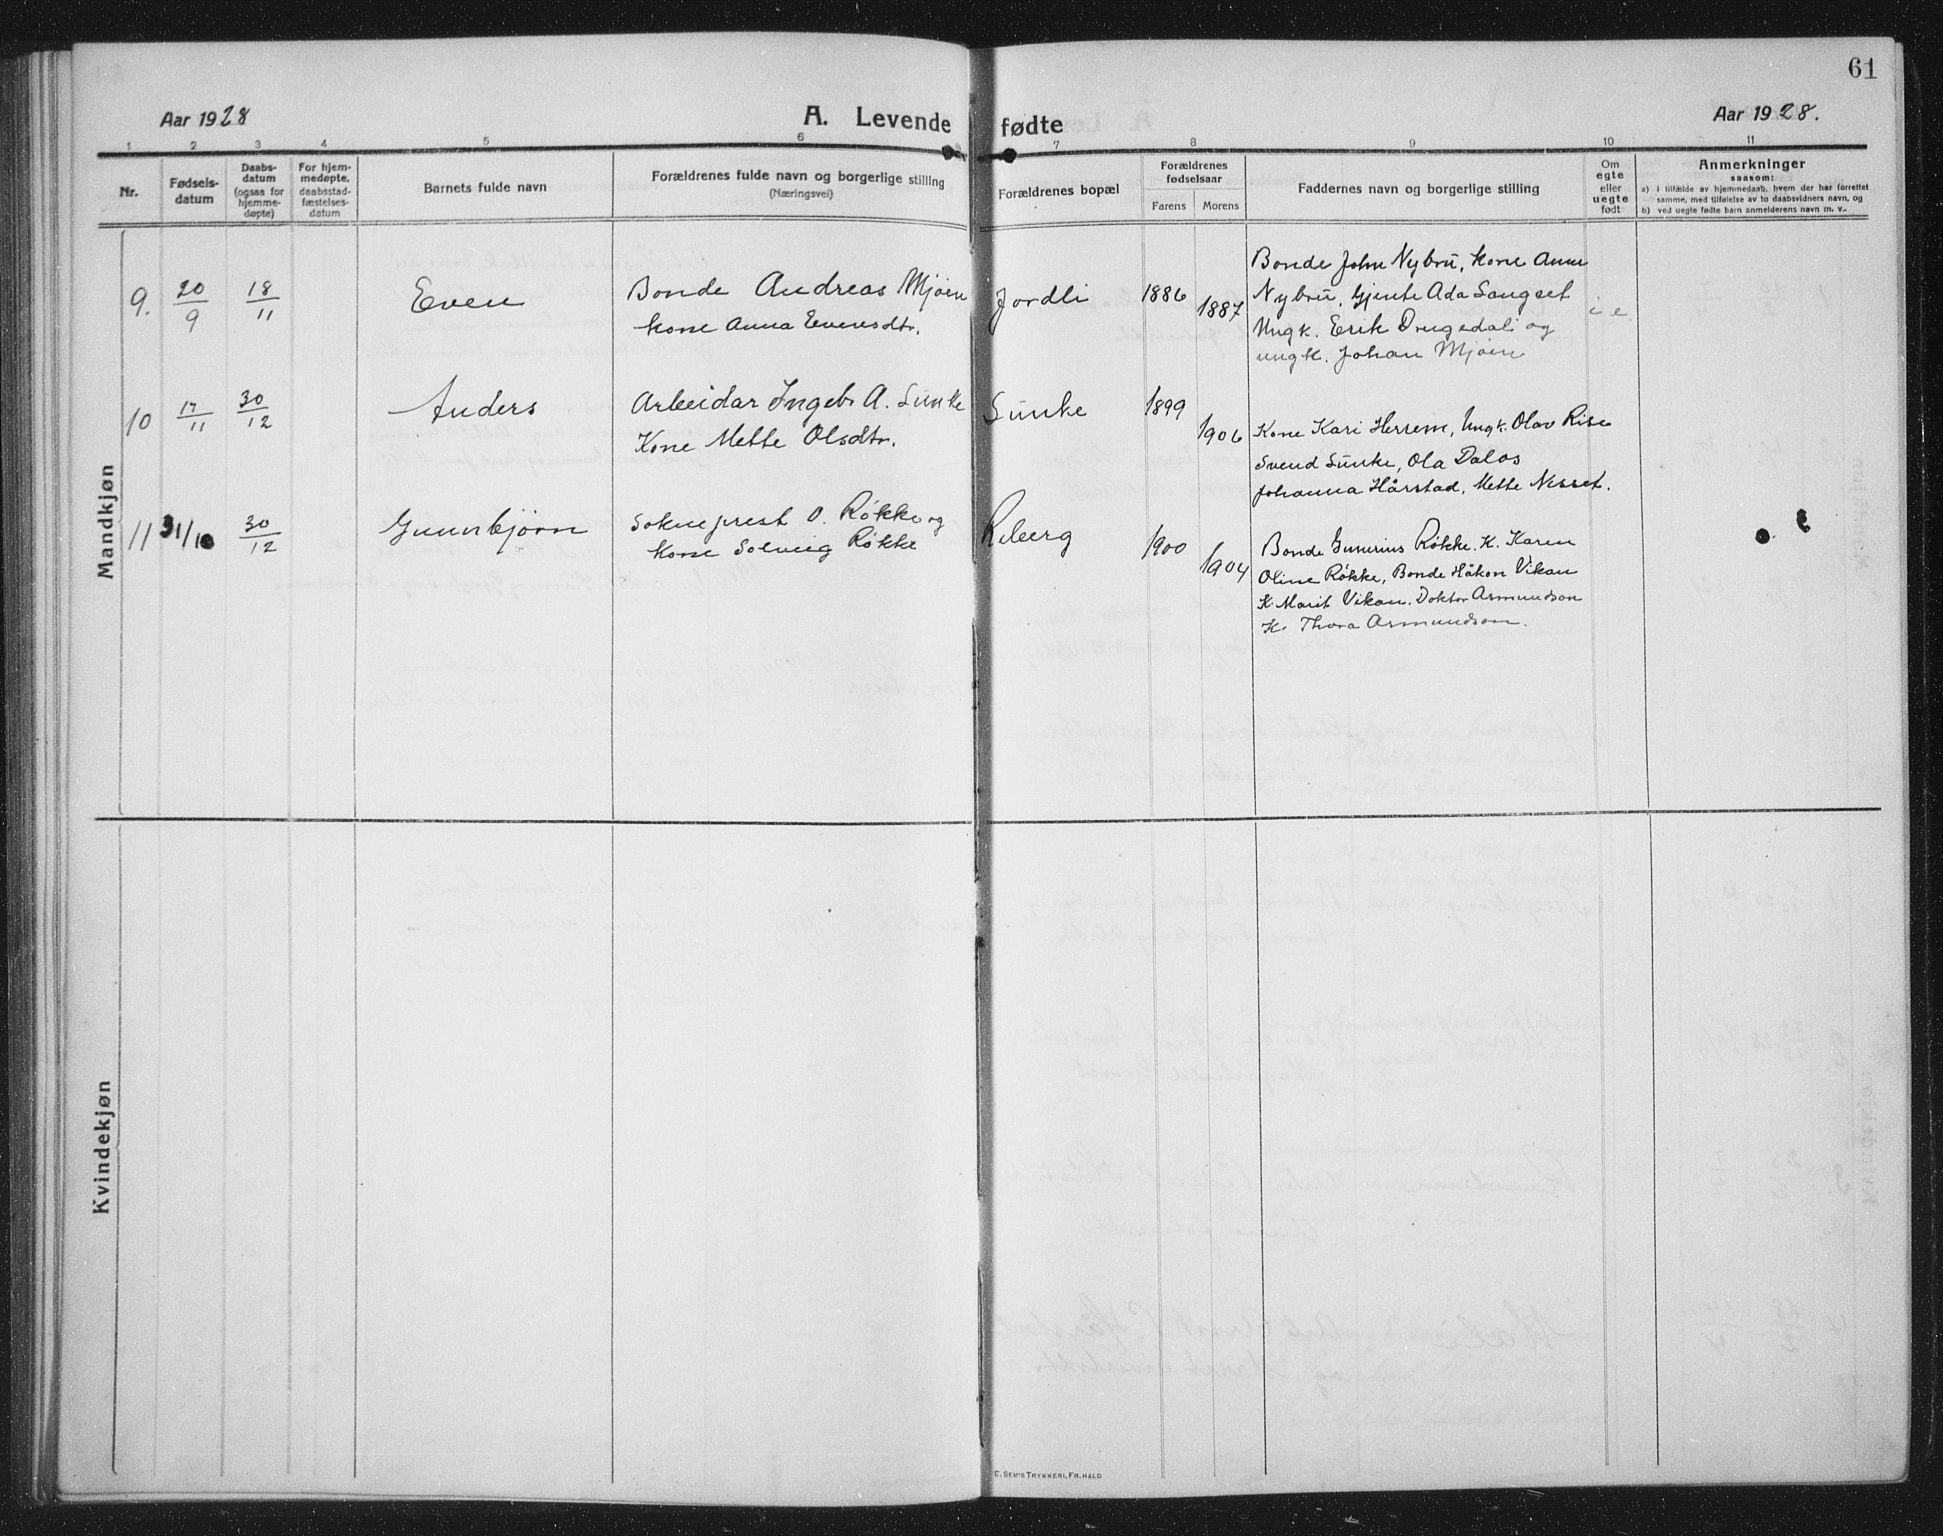 61
Aar 1928
A. Levende fødte
Aar 1928.
1 2 3 4 5 6 7 8 9 10 11
Nr.
Fødsels-
datum
Daabs-
datum
(ogsaa for
hjemme-
døpte)
For hjem-
medøpte,
daabsstad-
fæstelses-
datum
Barnets fulde navn
Forældrenes fulde navn og borgerlige stilling
(Næringsvei)
Forældrenes bopæl
Forældrenes
fødselsaar
Farens
Morens
Faddernes navn og borgerlige stilling
Om
egte
eller
uegte
født
Anmerkninger
saasom:
a) i tilfælde av hjemmedaab, hvem der har forrettet
samme, med tilføielse av to daabsvidners navn, og
b) ved uegte fødte barn anmelderens navn m. v.
Mandkjøn
9. 20/9 18/11 Even
Bonde Andreas Mjøen
Kone Anna Evensdtr.
Jordli 1886 1887
Bonde John Nybru, Kone Anne
Nybru, Gjente Ada Sangset
Ungk. Erik Drugedali og
ungk. Johan Mjøen
i e.
10 17/11 30/12 Anders
Arbeidar Ingebr A. Sunke
Kone Mette Olsdtr.
Sunke 1899 1906
Kone Kari Herrem, Ungk. Olav Rise
Svend Sunke, Ola Dalos
Johanna Hårstad, Mette Nesset.
11 31/10 30/12 Gunnbjørn
Sokneprest O. Røkke og
Kone Solveig Røkke
Reberg 1900 1904
Bonde Gunerius Røkke. K. Karen
Oline Røkke, Bonde Håkon Vikan
K. Marit Vikan. Doktor Asmundson
K. Thora Asmundson.
Kvindekjøn
E. Sem's Trykkeri, Fr.hald